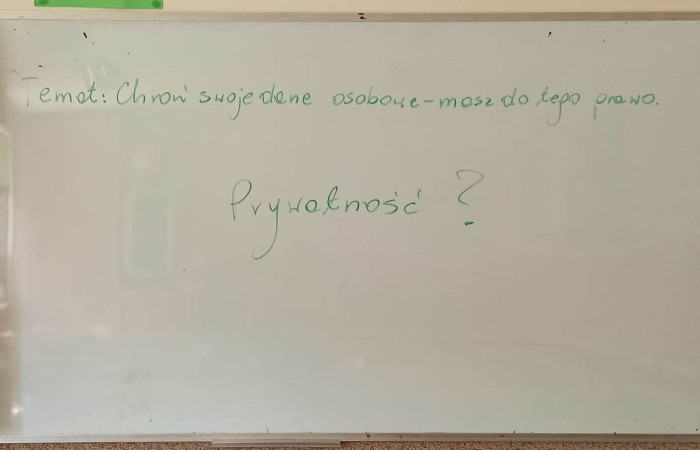 Temat: Chroń swoje dane osobowe - masz do tego prawo.
Prywatność ?